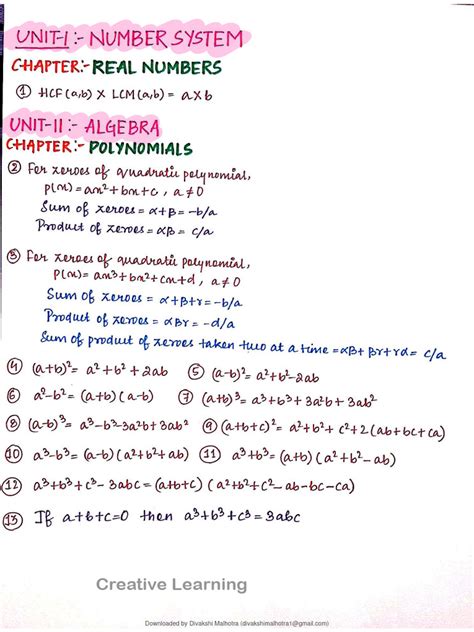 UNIT-I :- NUMBER SYSTEM
CHAPTER:- REAL NUMBERS
① HCF(a,b) × LCM(a,b) = a×b
UNIT-II :- ALGEBRA
CHAPTER:- POLYNOMIALS
② For zeroes of quadratic polynomial,
p(x) = ax²+bx+c, a≠0
Sum of zeroes = α+β = -b/a
Product of zeroes = αβ = c/a
③ For zeroes of quadratic polynomial,
P(x) = ax³+bx²+cx+d, a≠0
Sum of zeroes = α+β+γ = -b/a
Product of zeroes = αβγ = -d/a
Sum of product of zeroes taken two at a time = αβ+βγ+γα = c/a
④ (a+b)² = a²+b²+2ab ⑤ (a-b)² = a²+b²-2ab
⑥ a²-b² = (a+b)(a-b) ⑦ (a+b)³ = a³+b³+3a²b+3ab²
⑧ (a-b)³ = a³-b³-3a²b+3ab² ⑨ (a+b+c)² = a²+b²+c²+2(ab+bc+ca)
⑩ a³-b³ = (a-b)(a²+b²+ab) ⑪ a³+b³ = (a+b)(a²+b²-ab)
⑫ a³+b³+c³-3abc = (a+b+c)(a²+b²+c²-ab-bc-ca)
⑬ If a+b+c=0 then a³+b³+c³=3abc
Creative Learning
Downloaded by Divakshi Malhotra (divakshimalhotra1@gmail.com)